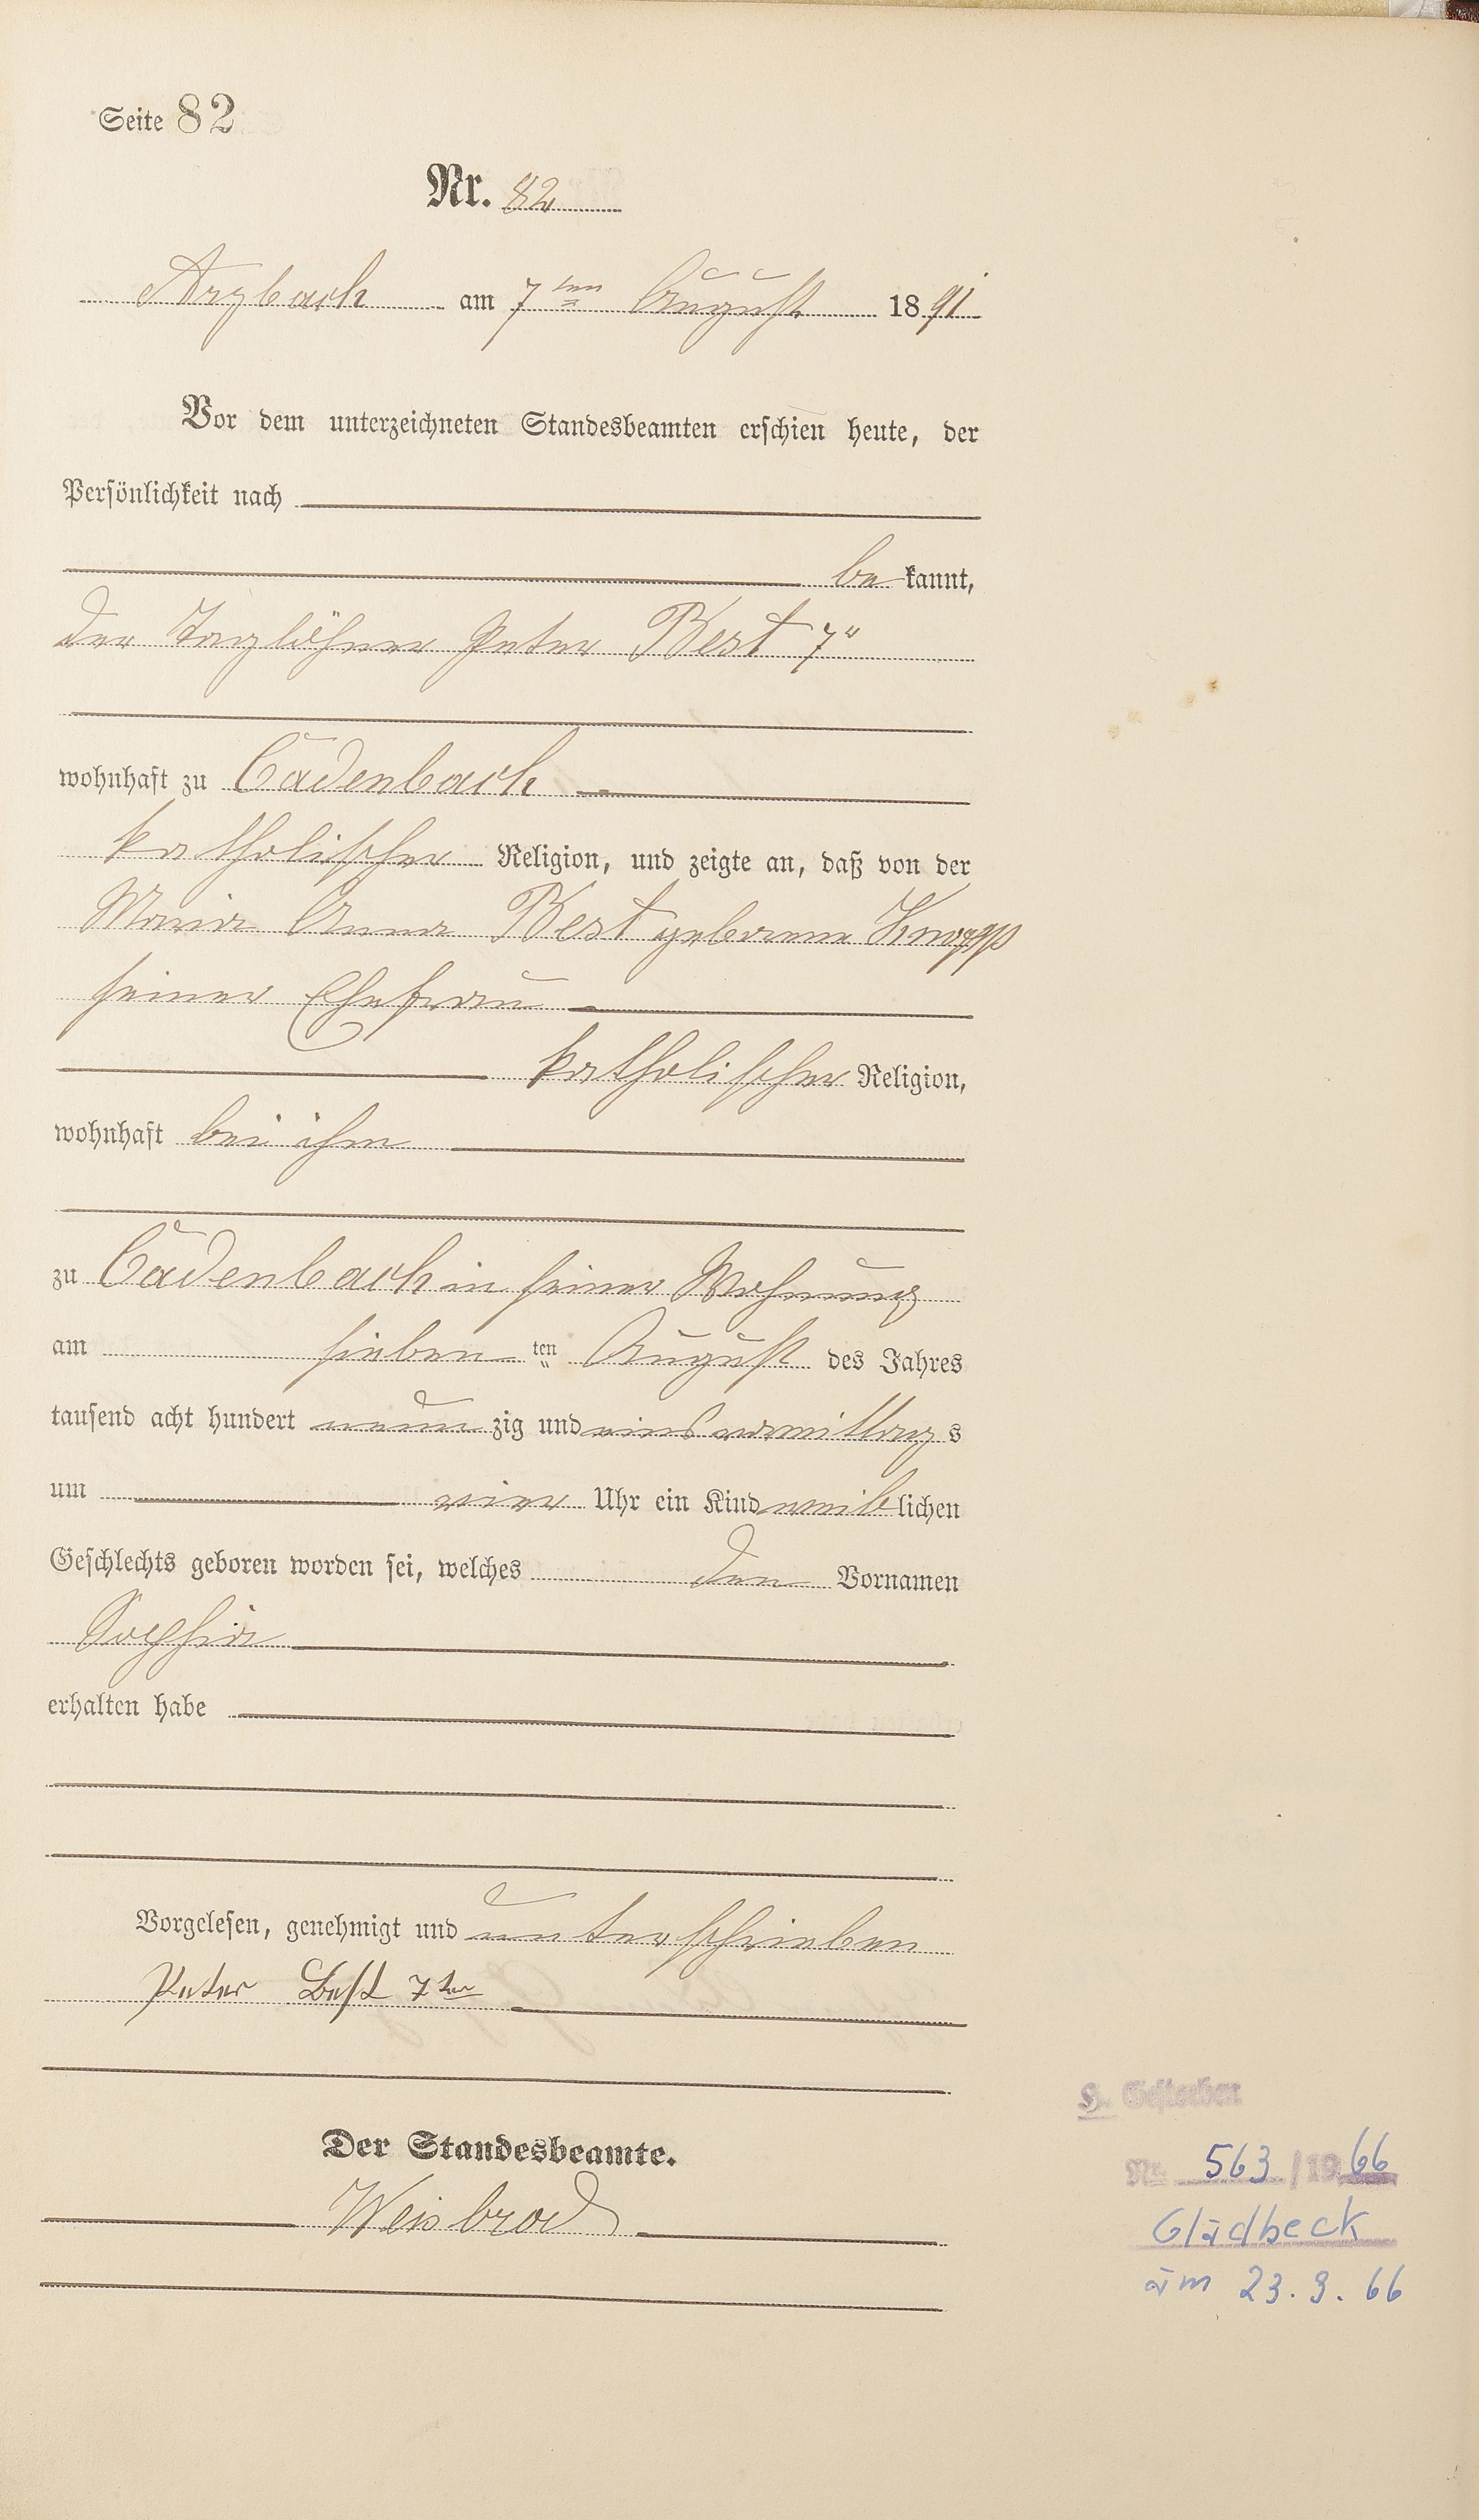 Seite 82
Nr. 82
Arzbach am 7ten August 1891
Vor dem unterzeichneten Standesbeamten erschien heute, der
Persönlichkeit nach
bekannt,
der Taglöhner Peter Best 7r
wohnhaft zu Cadenbach
katholischer Religion, und zeigte an, daß von der
Maria Anna Best geborene Knopp
seiner Ehefrau
katholischer Religion,
wohnhaft bei ihm
zu Cadenbach in seiner Wohnung
am sieben ten August des Jahres
tausend acht hundert neunzig und eins vormittags
um vier Uhr ein Kind weiblichen
Geschlechts geboren worden sei, welches den Vornamen
Sophia
erhalten habe
Vorgelesen, genehmigt und unterschrieben
Peter Best 7ter
Der Standesbeamte.
Weisbrod
H. Gestorben
Nr. 563/1966
Gladbeck
am 23.9.66